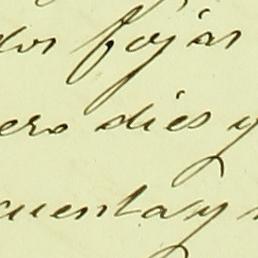 dos fojas
ero dies y
cuentay